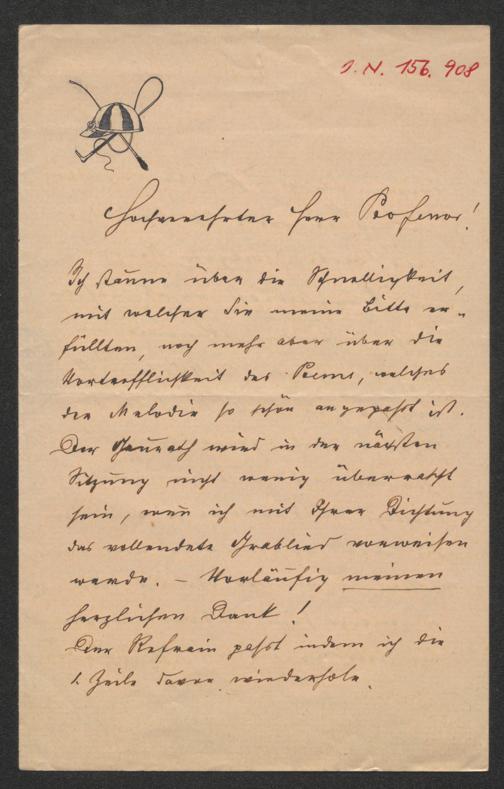 I. N. 156. 908
Hochverehrter Herr Professor!
Ich staune über die Schnelligkeit,
mit welcher Sie meine Bitte er-
füllten, noch mehr aber über die
Vortrefflichkeit des Poems, welches
der Melodie so schön angepaßt ist.
Der Gaurath wird in der nächsten
Sitzung nicht wenig überrascht
sein, wenn ich mit Ihrer Dichtung
das vollendete Grablied vorweisen
werde. – Vorläufig meinen
herzlichen Dank!
Der Refrain paßt indem ich die
1. Zeile davon wiederhole.